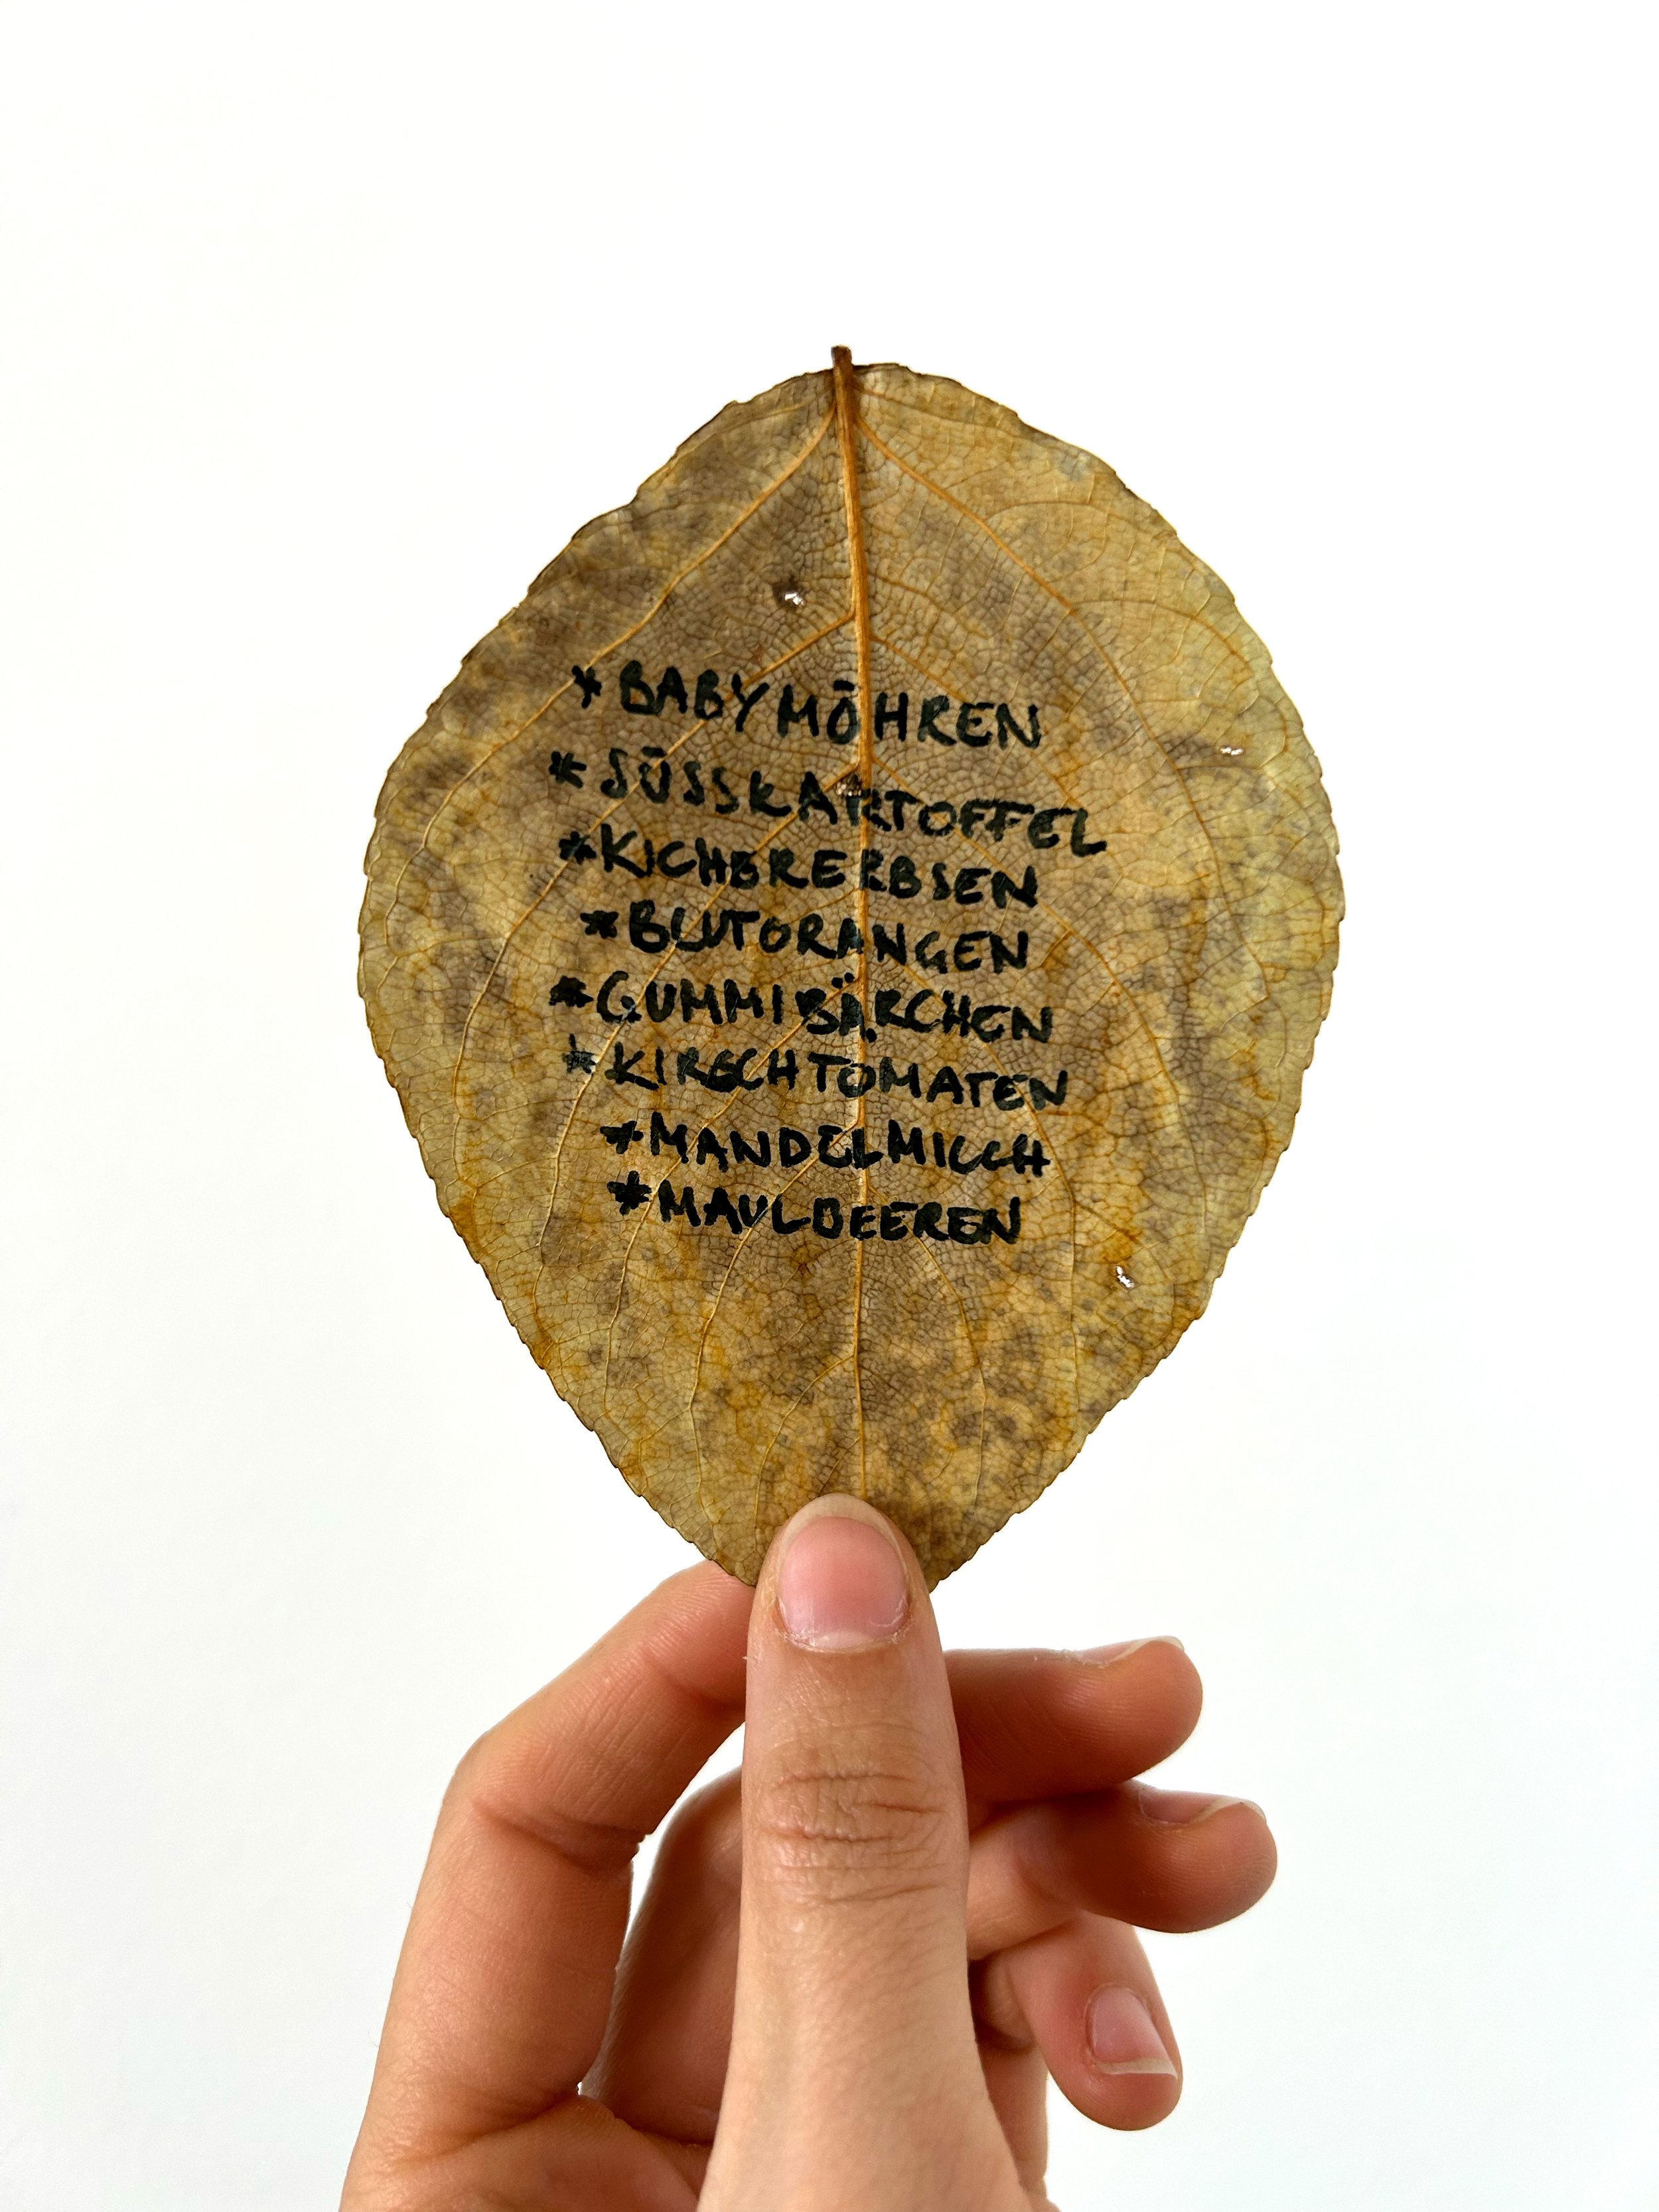 *BABYMÖHREN
*SÜSSKARTOFFEL
*KICHERERBSEN
*BLUTORANGEN
*GUMMIBÄRCHEN
*KIRSCHTOMATEN
*MANDELMILCH
*MAULBEEREN